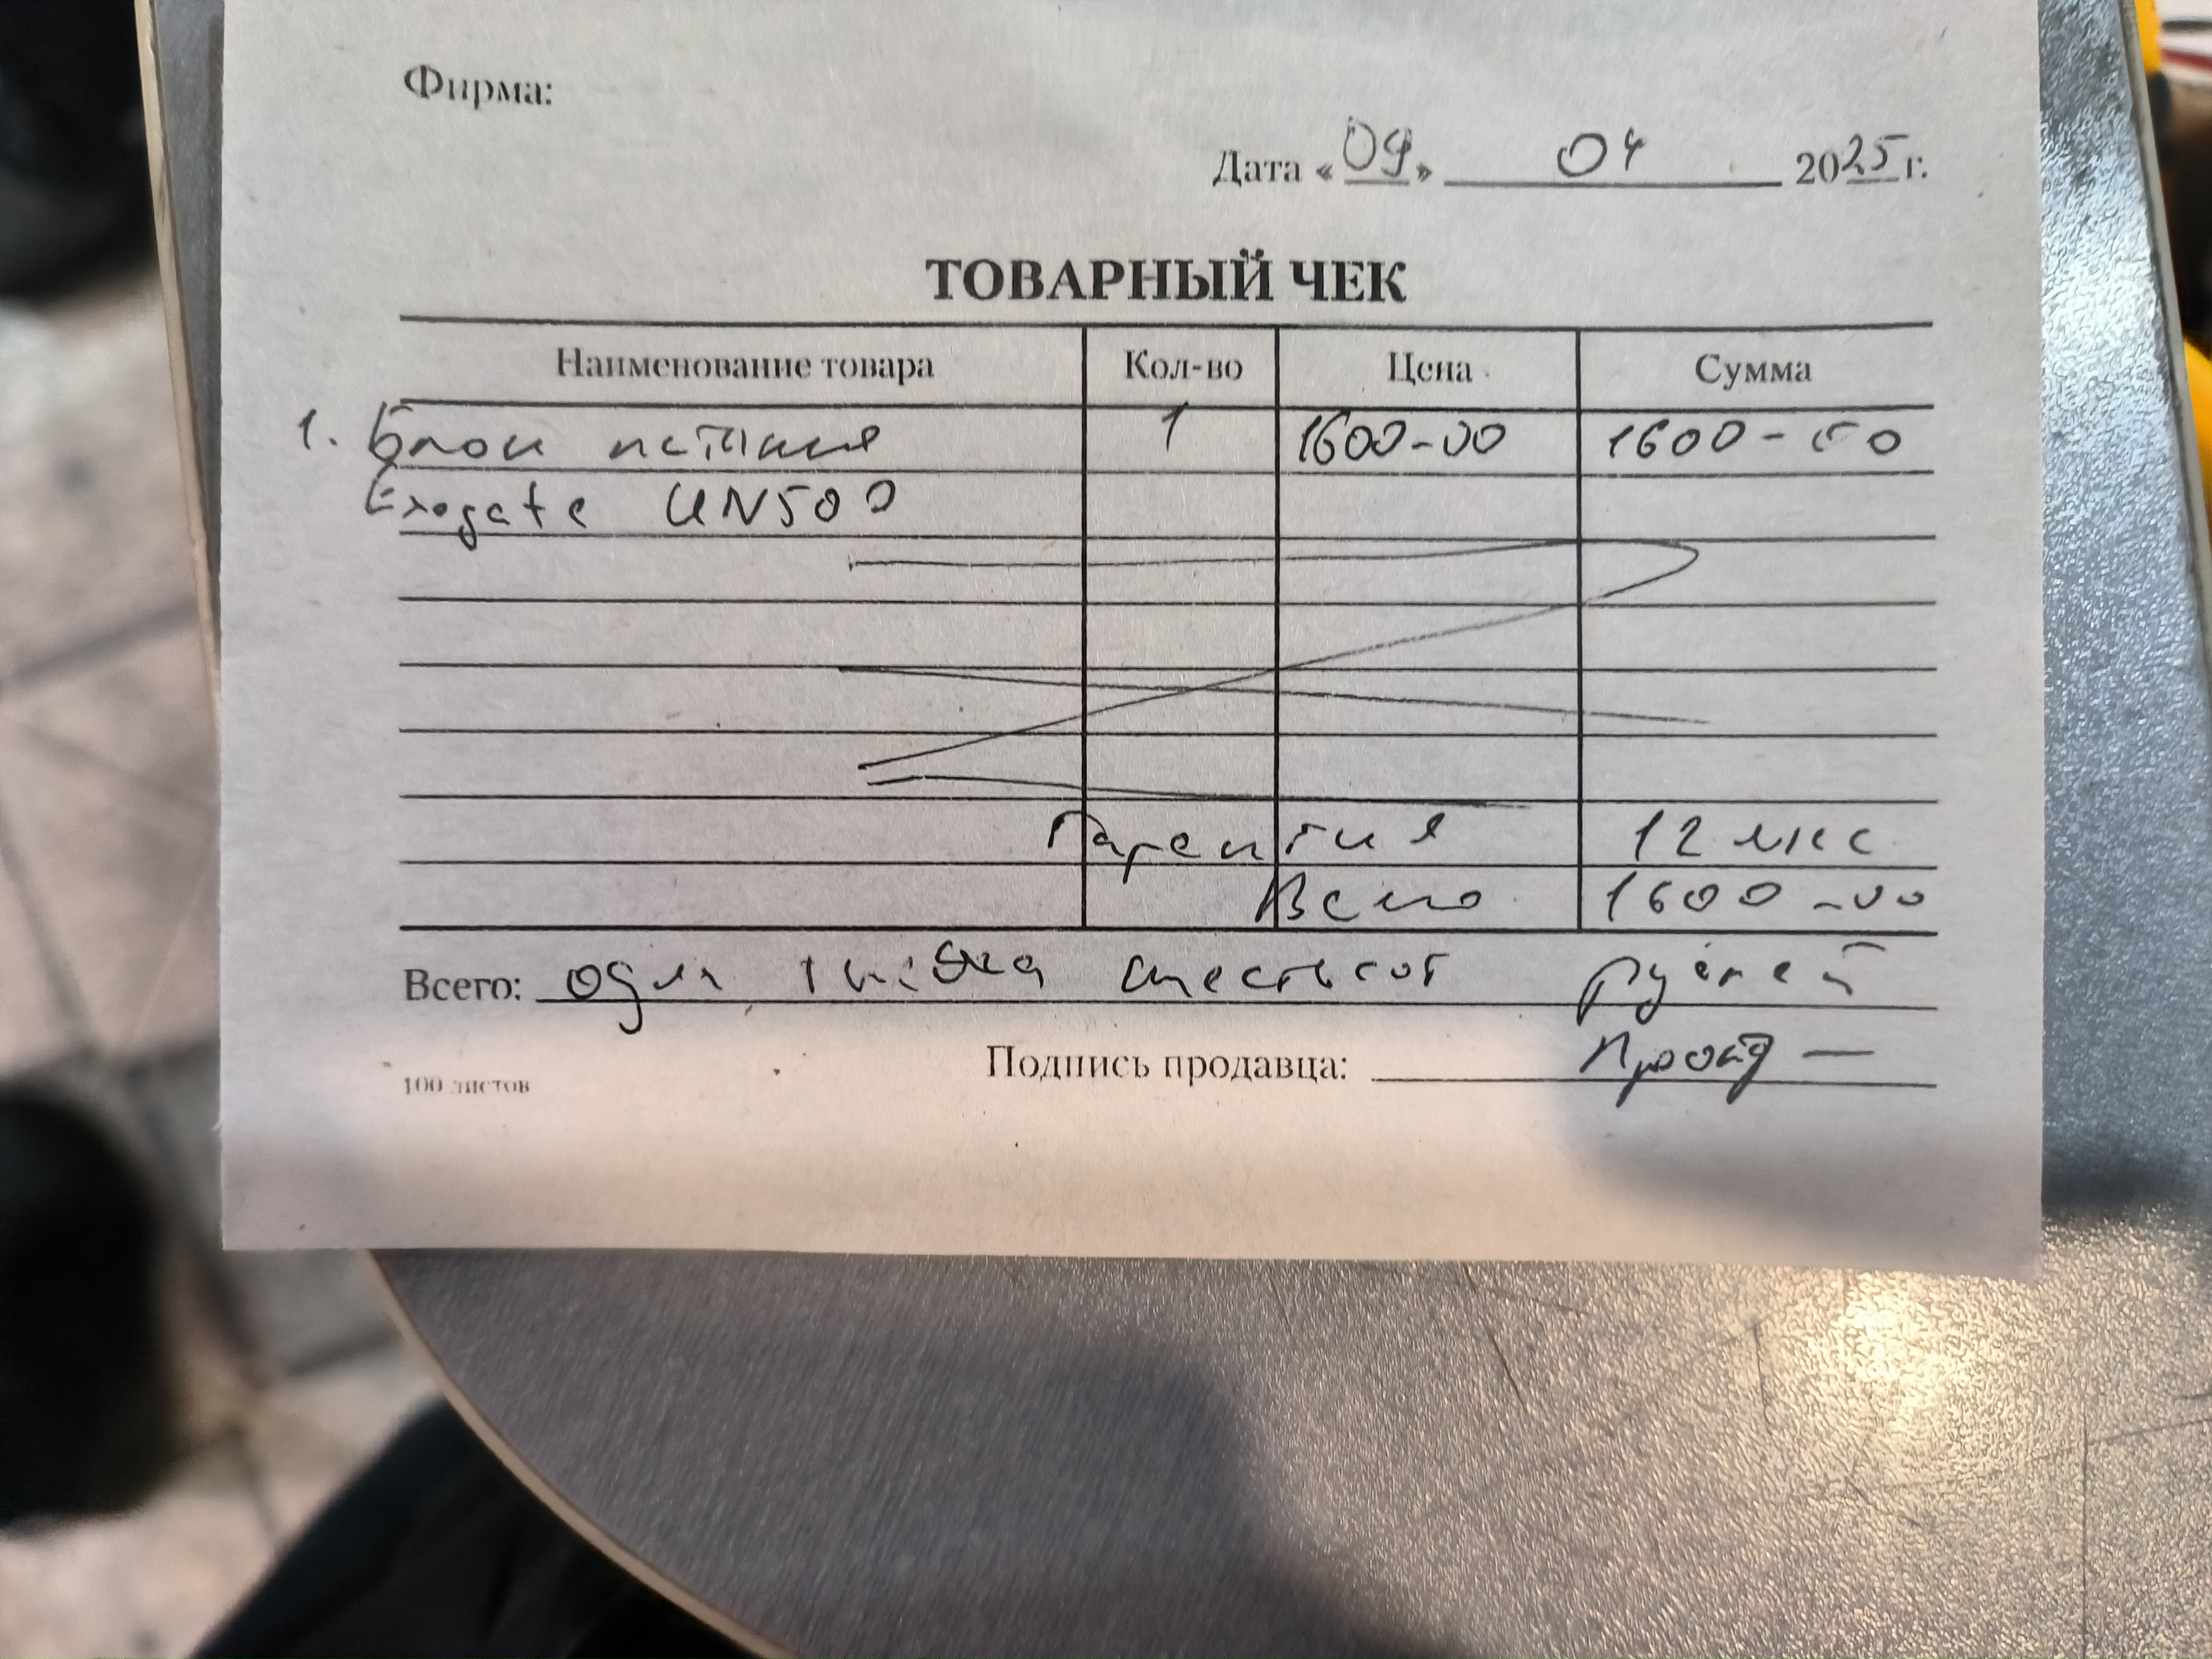 Фирма:
Дата «09» 04 2025 г.
ТОВАРНЫЙ ЧЕК
Наименование товара Кол-во Цена Сумма
1. Блок питания 1 1600-00 1600-00
Exegate UN500
Гарантия 12 мес
Всего 1600-00
Всего: одна тысяча шестьсот рублей
Подпись продавца:
100 листов